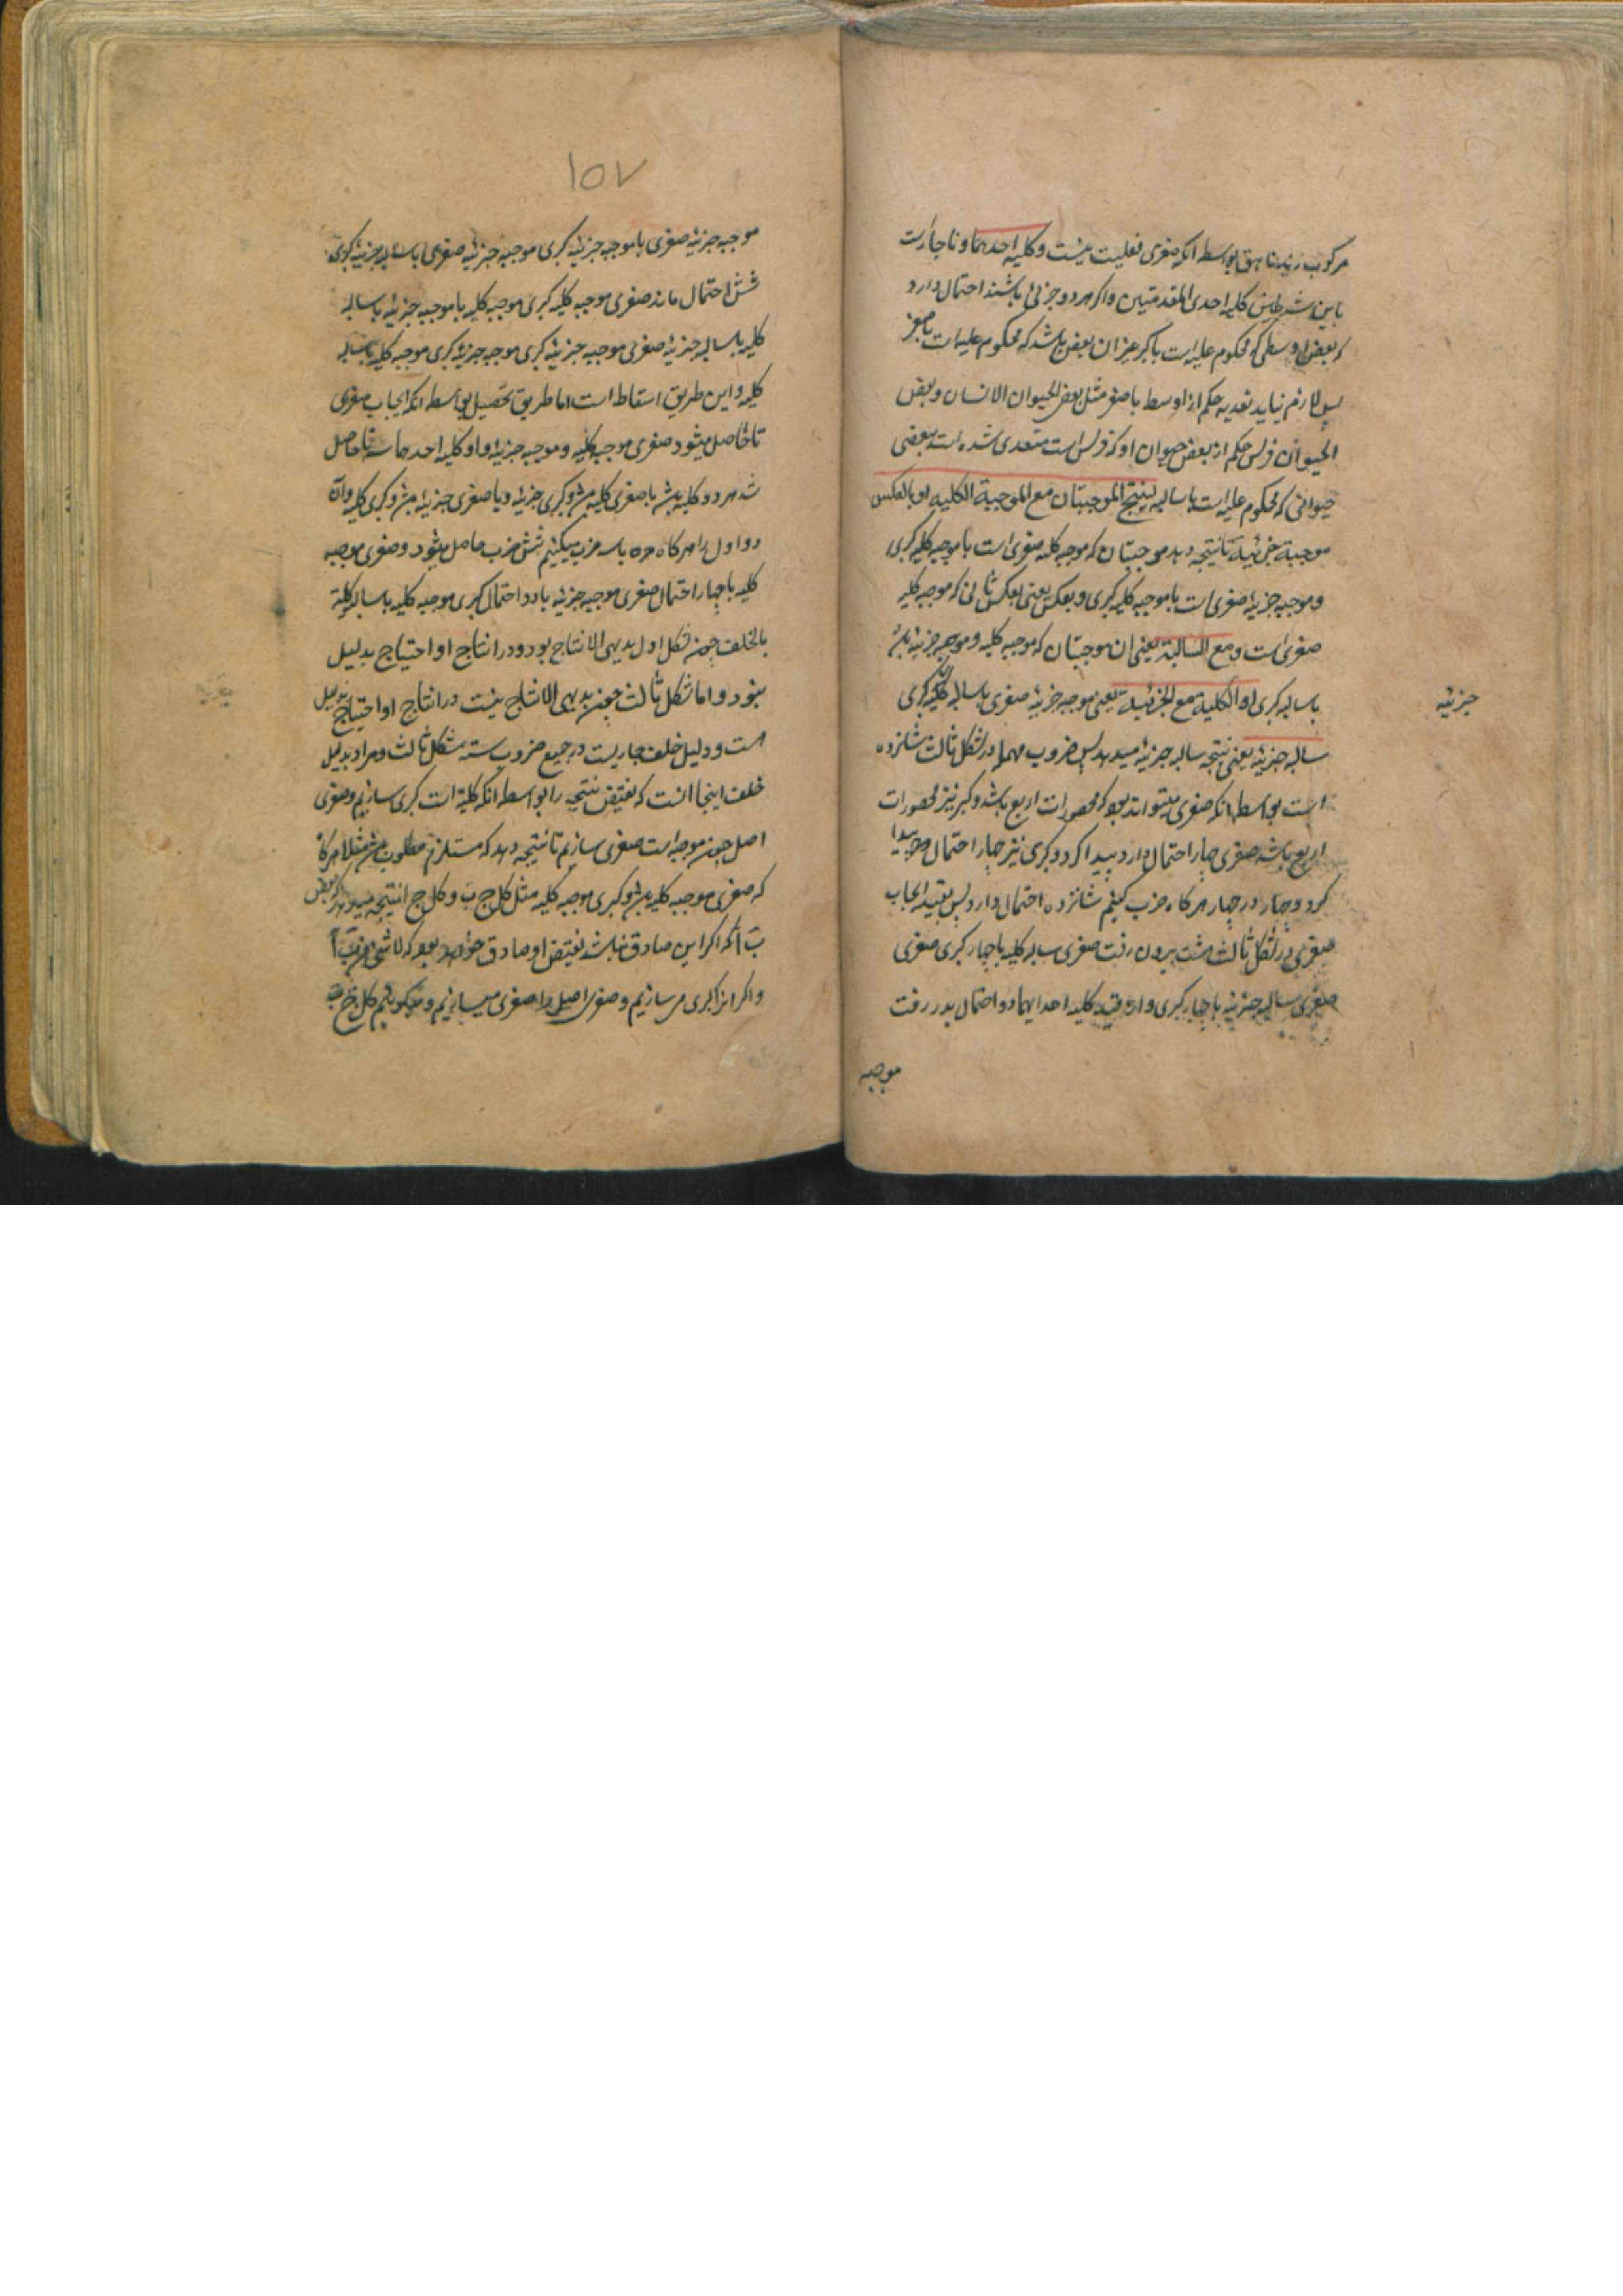 مرکوب زید ناهق بواسطه انکه صغری فعلیت نیست و کلیه احدهما و ناچارست
باین شرطیس کلیه احدی المقدمتین واکر هر دو جزئی باشند احتمال دارد
که بعض اوسطی که محکوم علیه است باکبر غیر ان بعض باشد که محکوم علیه است باصغر
پس لازم نیاید تعدیه حکم از اوسط باصغر مثل بعض الحیوان الانسان و بعض
الحیوان فرس حکم از بعض حیوان او که فرس است متعدی نشده است ببعضی
حیوانی که محکوم علیه است باساله لینتج الموجبتان مع الموجبة الکلیه او بالعکس
موجبة جزئیة تا نتیجه دهد موجبتان که موجبه کلیه صغری است با موجبه کلیه کبری
و موجبه جزئیه صغری است با موجبه کلیه کبری و بعکس یعنی بعکس ثانی که موجبه کلیه
صغری است و مع السالبة یعنی ان موجبتان که موجبه کلیه و موجبه جزئیه
باسالبه کبری او الکلیة مع الجزئیة یعنی موجبه جزئیه صغری باسالبه کلیه کبری
جزئیه
سالبه جزئیه یعنی نتیجه سالبه جزئیه میدهد پس ضروب مهمله در شکل ثالث شانزده
است بواسطه انکه صغری میتواند بود که محصورات اربع باشد و کبر نیز محصورات
اربع باشد صغری چهار احتمال دارد پیدا کرد و کبری نیز چهار احتمال پیدا
کرد و چهار در چهار هر کاه ضرب کنیم شانزده احتمال دارد پس بقید ایجاب
صغری در شکل ثالث هشت بیرون رفت صغری سالبه کلیه باچهار کبری صغری
صغری سالبه جزئیه باچهار کبری و از قید کلیه احدایهما دو احتمال بدر رفت
موجبه
۱۵۷
موجبه جزئیه صغری با موجبه جزئیه کبری موجبه جزئیه صغری باسالبه جزئیه کبری
شش احتمال ماند صغری موجبه کلیه کبری موجبه کلیه یا موجبه جزئیه یا سالبه
کلیه یا سالبه جزئیه صغری موجبه جزئیه کبری موجبه جزئیه کبری موجبه کلیه یا سالبه
کلیه و این طریق اسقاط است اما طریق تحصیل بواسطه انکه ایجاب صغری
تا حاصل میشود صغری موجبه کلیه و موجبه جزئیه و او کلیه احدهما سه تا حاصل
شد هر دو کلیه باشد یا صغری کلیه باشد و کبری جزئیه و یا صغری جزئیه باشد و کبری کلیه و ان
دو اول را هر کاه در سه ضرب میکنیم شش ضرب حاصل میشود و صغری موجبه
کلیه با چهار احتمال صغری موجبه جزئیه با دو احتمال کبری موجبه کلیه یا سالبه کلیة
بالخلف چون شکل اول بدیهی الانتاج بود و در انتاج او احتیاج بدلیل
نبود و اما شکل ثالث چون بدیهی الانتاج نیست در انتاج او احتیاج بدلیل
است و دلیل خلف جاریست در جمیع ضروب سته شکل ثالث و مراد بدلیل
خلف اینجا انست که نقیض نتیجه را بواسطه انکه کلیة است کبری سازیم و صغری
اصل چون موجبه است صغری سازیم تا نتیجه دهد که مستلزم مطلوب باشد مثلا هر کاه
که صغری موجبه کلیه باشد و کبری موجبه کلیه مثل کل ج ب و کل ج ا نتیجه میدهد که بعض
ب ا که اکر این صادق نباشد نقیض او صادق خواهد بود که لا شئ من ب ا
و اکر انرا کبری می سازیم و صغری اصل را صغری میسازیم و میکوئیم کل ج ب